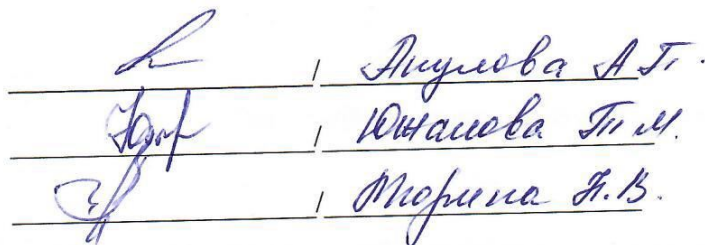 / Акулова А.П.
/ Южакова Т.М.
/ Тюрина Н.В.